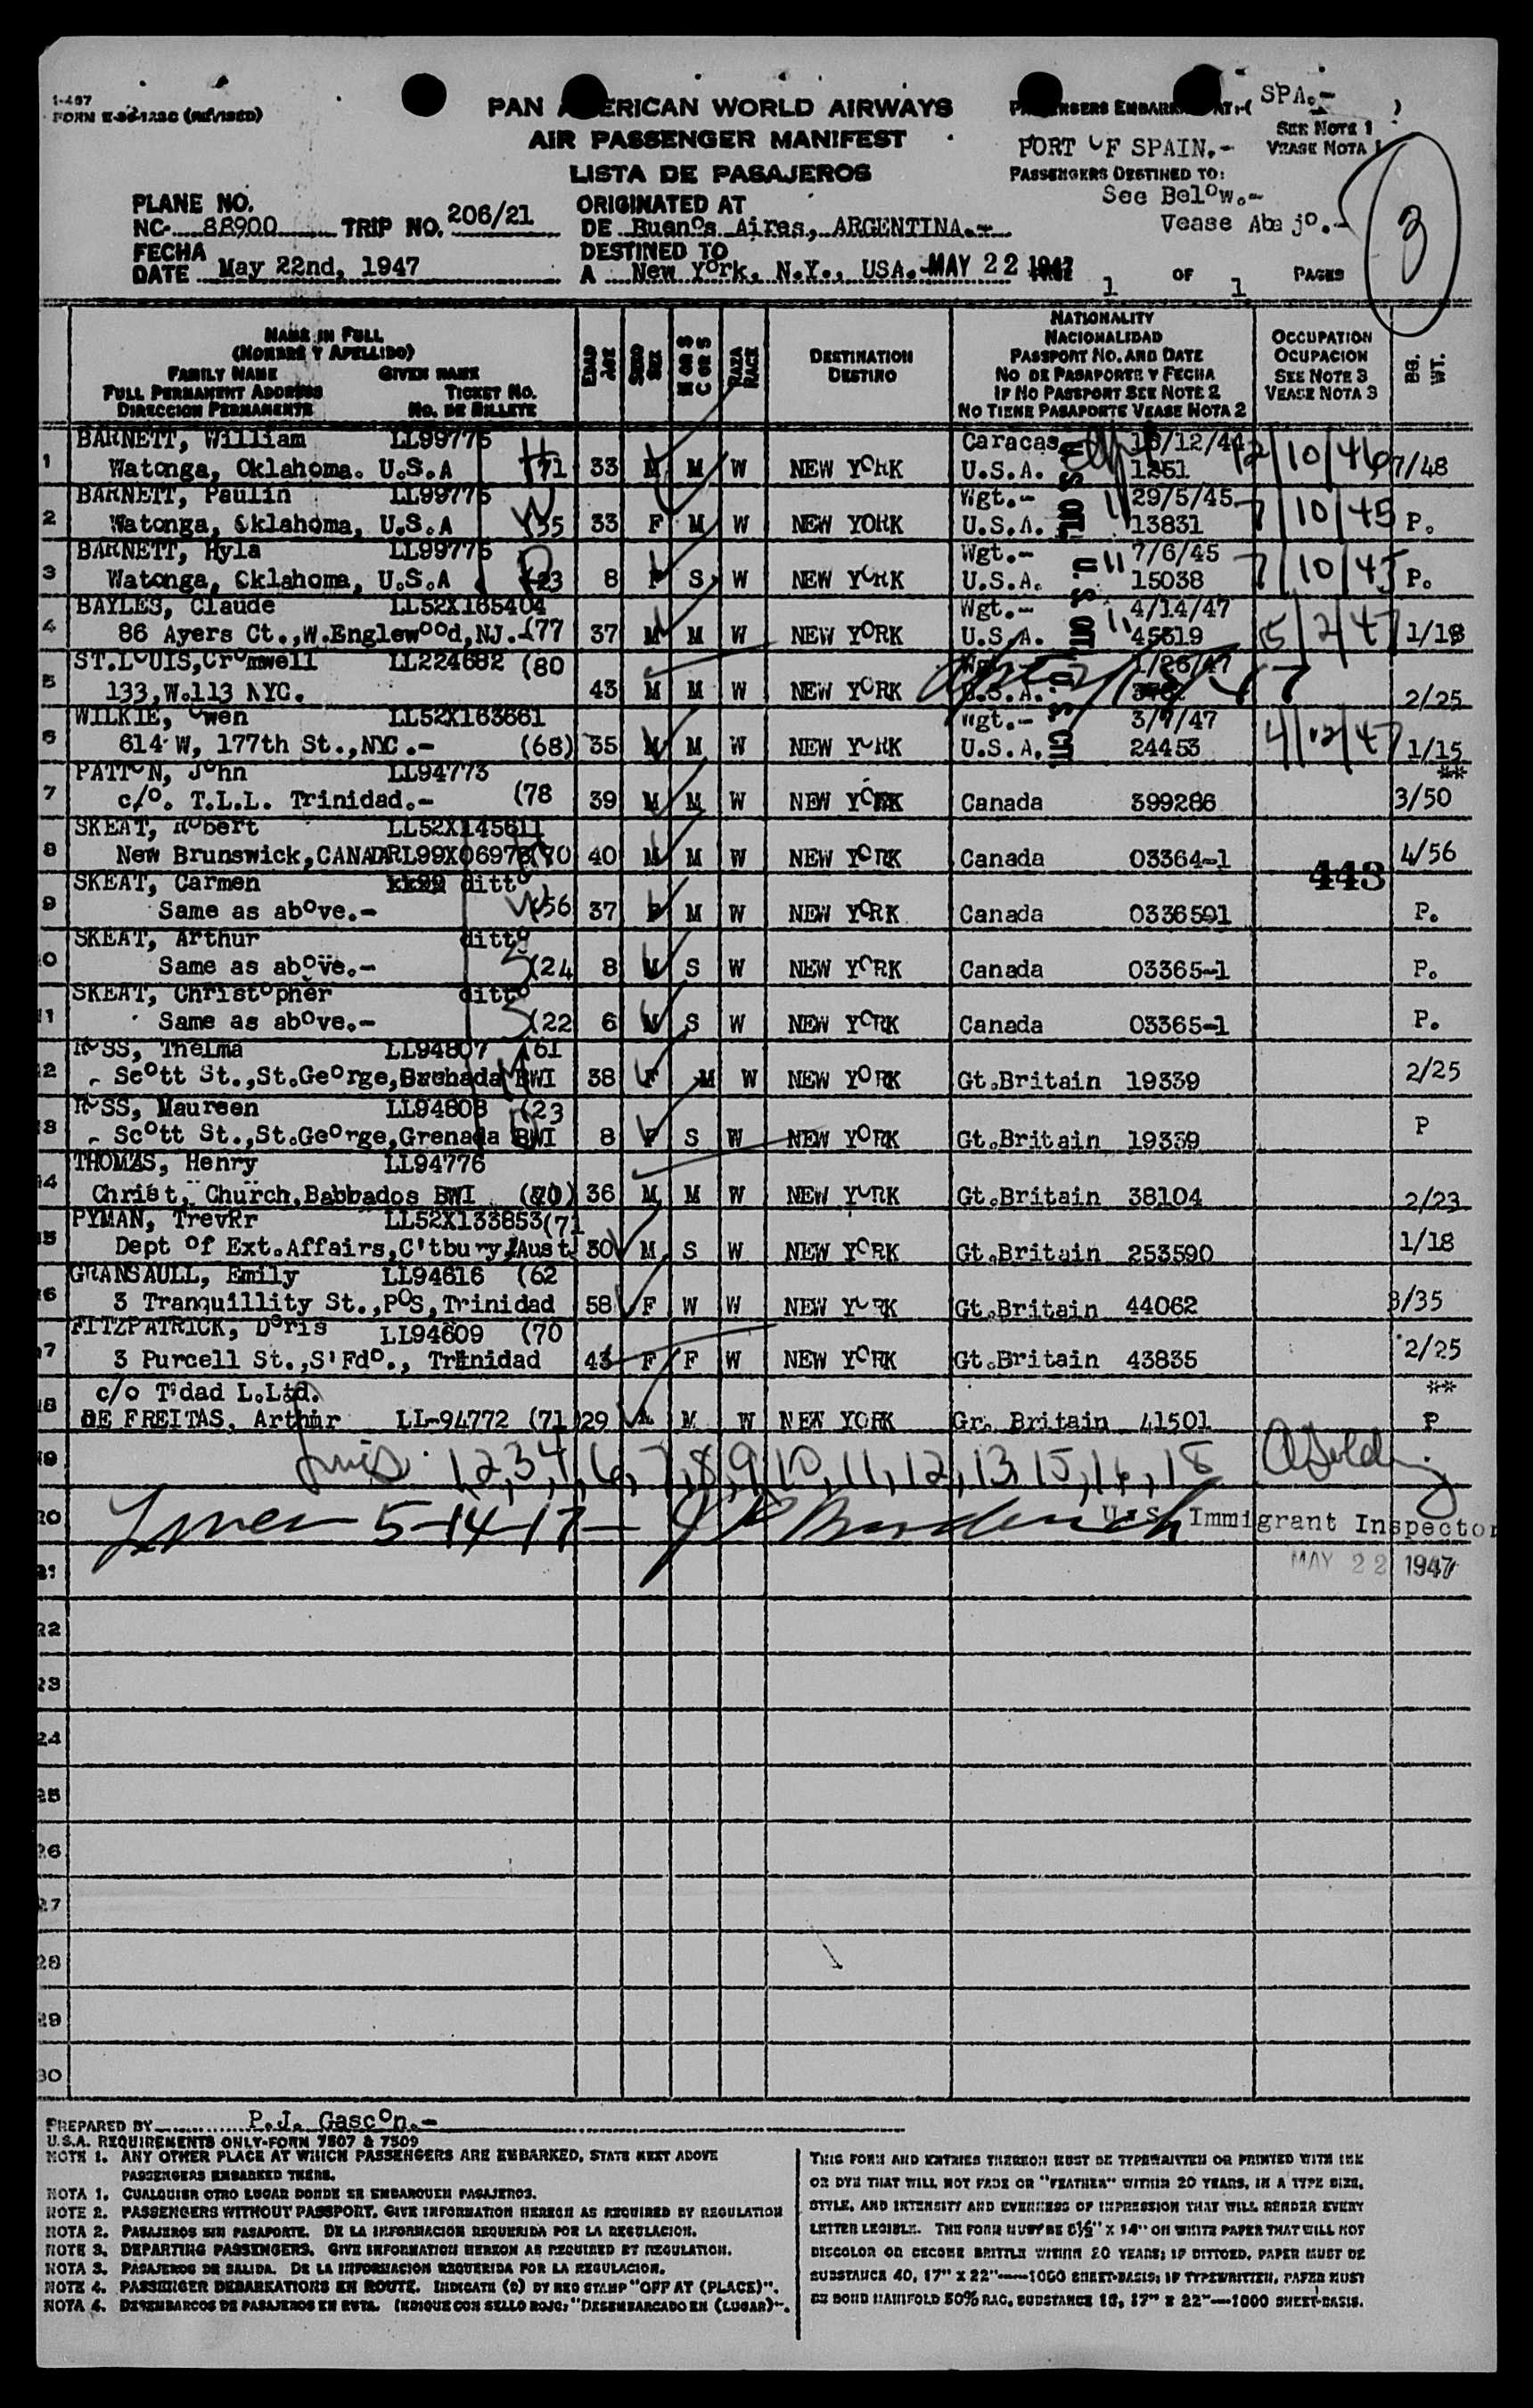 1-467
FORM E-96-123C (REVISED)
PAN AMERICAN WORLD AIRWAYS
AIR PASSENGER MANIFEST
LISTA DE PASAJEROS
PASSENGERS EMBARKED AT:-( SPA.- )
SEE NOTE 1
VEASE NOTA 1
PORT OF SPAIN.-
PASSENGERS DESTINED TO:
See Below.-
Vease Abajo.-
3
PLANE NO.
NC- 88900 TRIP NO. 206/21
ORIGINATED AT
DE Buenos Aires, ARGENTINA.-
FECHA
DATE May 22nd, 1947
DESTINED TO
A New York, N.Y., USA.- MAY 22 1947
PAGE 1 OF 1 PAGES
NAME IN FULL
(NOMBRE Y APELLIDO)
FAMILY NAME GIVEN NAME
FULL PERMANENT ADDRESS TICKET NO.
DIRECCION PERMANENTE NO. DE BILLETE
EDAD AGE
SEXO SEX
M OR S
C OR S
RAZA RACE
DESTINATION
DESTINO
NATIONALITY
NACIONALIDAD
PASSPORT NO. AND DATE
NO DE PASAPORTE Y FECHA
IF NO PASSPORT SEE NOTE 2
NO TIENE PASAPORTE VEASE NOTA 2
OCCUPATION
OCUPACION
SEE NOTE 3
VEASE NOTA 3
BG. WT.
BARNETT, William LL99775 Caracas 12/10/46
1 Watonga, Oklahoma. U.S.A (71 33 M M W NEW YORK U.S.A. 1251 7/48
BARNETT, Paulin LL99775 Wgt.- 29/5/45 7/10/45
2 Watonga, Oklahoma, U.S.A (55 33 F M W NEW YORK U.S.A. 13831 P.
BARNETT, Hyla LL99775 Wgt.- 7/6/45 7/10/45
3 Watonga, Oklahoma, U.S.A (23 8 F S W NEW YORK U.S.A. 15038 P.
BAYLES, Claude LL52X165404 Wgt.- 4/14/47 5/2/47
4 86 Ayers Ct., W.Englewood,NJ.-(77 37 M M W NEW YORK U.S.A. 45519 1/18
ST.LOUIS,Cromwell LL224682 (80 Wgt.- 1/26/47
5 133,W.113 NYC. 43 M M W NEW YORK U.S.A. 2/25
WILKIE, Owen LL52X163661 Wgt.- 3/7/47 4/12/47
6 614 W, 177th St.,NYC.- (68) 35 M M W NEW YORK U.S.A. 24453 1/15
PATTON, John LL94773 **
7 c/o. T.L.L. Trinidad.- (78 39 M M W NEW YORK Canada 399286 3/50
SKEAT, Robert LL52X145611
8 New Brunswick,CANADARL99X06978(70 40 M M W NEW YORK Canada 03364-1 4/56
443
SKEAT, Carmen ditto
9 Same as above.- (56 37 F M W NEW YORK Canada 0336501 P.
SKEAT, Arthur ditto
10 Same as above.- (24 8 M S W NEW YORK Canada 03365-1 P.
SKEAT, Christopher ditto
11 Same as above.- (22 6 M S W NEW YORK Canada 03365-1 P.
ROSS, Thelma LL94807 (61
12 Scott St.,St.George, BWI 38 F M W NEW YORK Gt.Britain 19339 2/25
ROSS, Maureen LL94808 (23
13 Scott St.,St.George,Grenada BWI 8 F S W NEW YORK Gt.Britain 19339 P
THOMAS, Henry LL94776
14 Christ, Church,Babbados BWI 36 M M W NEW YORK Gt.Britain 38104 2/23
PYMAN, TrevRr LL52X133853(71
15 Dept of Ext.Affairs,C'tbury,Aust 30 M S W NEW YORK Gt.Britain 253590 1/18
GRANSAULL, Emily LL94616 (62
16 3 Tranquillity St.,POS,Trinidad 58 F W W NEW YORK Gt.Britain 44062 3/35
FITZPATRICK, Doris LL94609 (70
17 3 Purcell St.,S'Fdo., Trinidad 43 F F W NEW YORK Gt.Britain 43835 2/25
c/o T'dad L.Ltd. **
18 DE FREITAS, Arthur LL-94772 (71 29 M W NEW YORK Gr. Britain 41501 P
19 1,2,3,4,6,7,8,9,10,11,12,13,15,16,18
20 U.S. Immigrant Inspector
21 MAY 22 1947
22
23
24
25
26
27
28
29
30
PREPARED BY P.J. Gascon.-
U.S.A. REQUIREMENTS ONLY-FORM 7507 & 7509
NOTE 1. ANY OTHER PLACE AT WHICH PASSENGERS ARE EMBARKED, STATE NEXT ABOVE
PASSENGERS EMBARKED THERE.
NOTA 1. CUALQUIER OTRO LUGAR DONDE SE EMBARQUEN PASAJEROS.
NOTE 2. PASSENGERS WITHOUT PASSPORT. GIVE INFORMATION HEREON AS REQUIRED BY REGULATION
NOTA 2. PASAJEROS SIN PASAPORTE. DE LA INFORMACION REQUERIDA POR LA REGULACION.
NOTE 3. DEPARTING PASSENGERS. GIVE INFORMATION HEREON AS REQUIRED BY REGULATION.
NOTA 3. PASAJEROS DE SALIDA. DE LA INFORMACION REQUERIDA POR LA REGULACION.
NOTE 4. PASSENGER DEBARKATIONS EN ROUTE. INDICATE (D) BY RED STAMP "OFF AT (PLACE)".
NOTA 4. DESEMBARCOS DE PASAJEROS EN RUTA. INDIQUE CON SELLO ROJO: "DESEMBARCADO EN (LUGAR)".
THIS FORM AND ENTRIES THEREON MUST BE TYPEWRITTEN OR PRINTED WITH INK
OR DYE THAT WILL NOT FADE OR "FEATHER" WITHIN 20 YEARS, IN A TYPE SIZE,
STYLE, AND INTENSITY AND EVENNESS OF IMPRESSION THAT WILL RENDER EVERY
LETTER LEGIBLE. THE FORM MUST BE 8½" X 14" ON WHITE PAPER THAT WILL NOT
DISCOLOR OR BECOME BRITTLE WITHIN 20 YEARS; IF DITTOED, PAPER MUST BE
SUBSTANCE 40, 17" X 22"—1000 SHEET-BASIS; IF TYPEWRITTEN, PAPER MUST
BE BOND MANIFOLD 50% RAG, SUBSTANCE 16, 17" X 22"—1000 SHEET-BASIS.